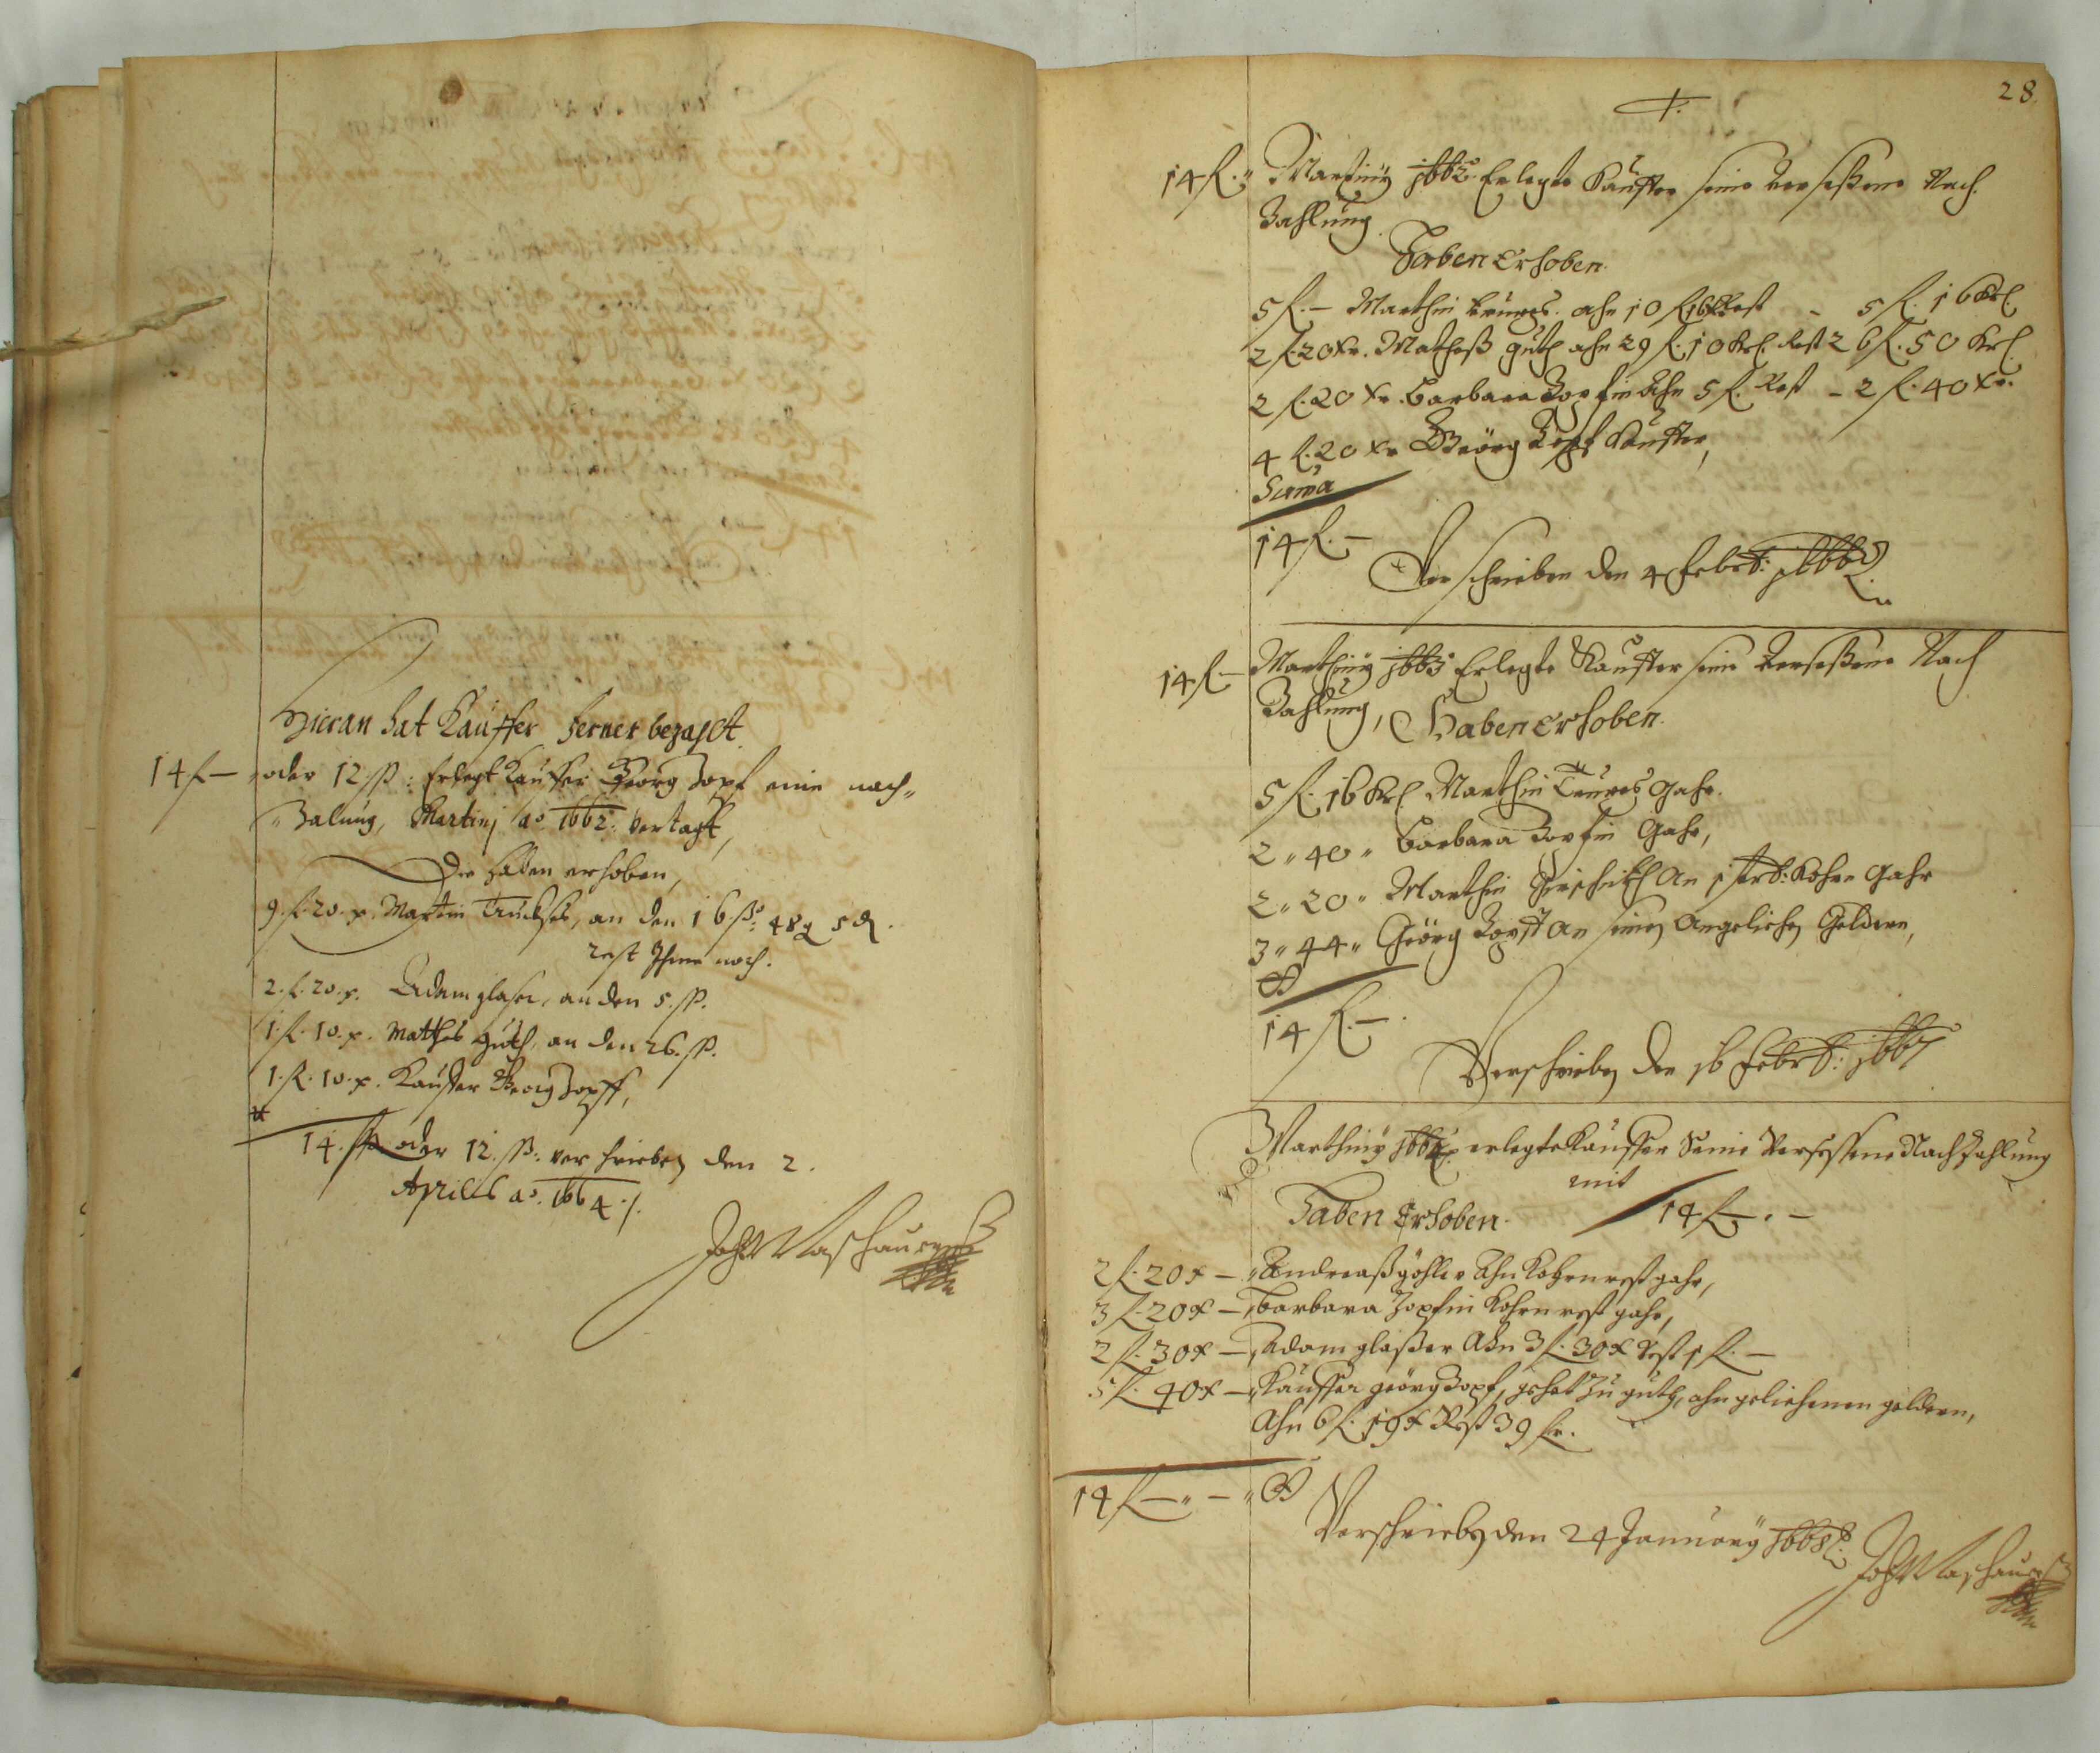 Hieran hat Kauffer ferner bezahlt.
14 fl — oder 12 ß: Erlegt Kauffer Georg Zopf eine nach-
Zalung, Martinj ao. 1662. vertagt,
Die haben erhoben,
9. fl. 20. x. Martin Truckses, an den 16 ßo: 48 g 5 d.
rest Ihme noch.
2. fl. 20. x. Adam glaser, an den 5. ß.
1. fl. 10. x. Matthes Guth, an den 26. ß.
1. fl. 10. x. Kauffer Georg Zopff,
14. fl oder 12. ß: verschrieben den 2.
Aprilis ao. 1664 ./.
28
14 fl. Martiny 1662 Erlegte Kauffer seine versessene Nach
Zahlung.
Haben Erhoben.
5 fl. — Marthin ahn 10 fl 16 Rest - 5 fl. 16 Krl
2 fl. 20 Xr. Matheß guth ahn 29 fl. 10 Krl. Rest 26 fl. 50 Krl
2 fl. 20 Xr. Barbara Zopfin Ahn 5 fl. Rest - 2 fl. 40 Xr.
4 fl. 20 Xr Geörg Zopf Kauffer,
Suma
14 fl. —
Verschrieben den 4 Feb
14 fl — Marthiny 1663 Erlegte Kauffer seine versessene Nach
Zahlung, Haben Erhoben.
5 fl. 16 Krl Marthin Gahr.
2 " 40 " Barbara Zopfin Gahr,
2 " 20 " Marthin An Kohrn Gahr
3 " 44 " Geörg Zopf An seinen Angeliehen Geldern,
14 fl. —.
Verschrieben den 16 Feb 1667
Marthiny 1664 erlegte Kauffer Seine Versessene Nach Zahlung
mit
Haben Erhoben. 14 fl — . —
2 fl. 20 x — Andreaß göhler Ahn Kohrn rest gahr,
3 fl. 20 x — Barbara Zopfin Kohrn rest gahr,
2 fl. 30 x — Adam glaßer Ahn 3 fl. 30 x Rest 1 fl. —
5 fl. 40 x — Kauffer geörg Zopf, gehet Zu guth, ahn geliehenen geldern,
Ahn 6 fl. 19 x Rest 39 Kr.
14 fl — " — "
Verschrieben den 24 January 1668